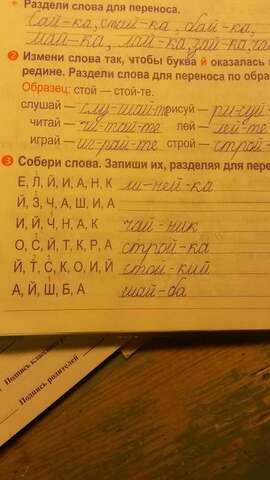 Раздели слова для переноса.
бай-ка,
май-ка, лай-ка,
2 Измени слова так, чтобы буква й оказалась
редине. Раздели слова для переноса по обра
Образец: стой — стой-те.
слушай — слу-шай-те рисуй — ри-суй
читай — чи-тай-те пей — лей-те
играй — иг-рай-те строй — строй-
3 Собери слова. Запиши их, разделяя для пере
Е, Л, Й, И, А, Н, К ли-ней-ка
Й, З, Ч, А, Ш, И, А
И, Й, Ч, Н, А, К чай-ник
О, С, Й, Т, К, Р, А строй-ка
Й, Т, С, К, О, И, Й стой-кий
А, Й, Ш, Б, А шай-ба
Подпись клас
Подпись родителей